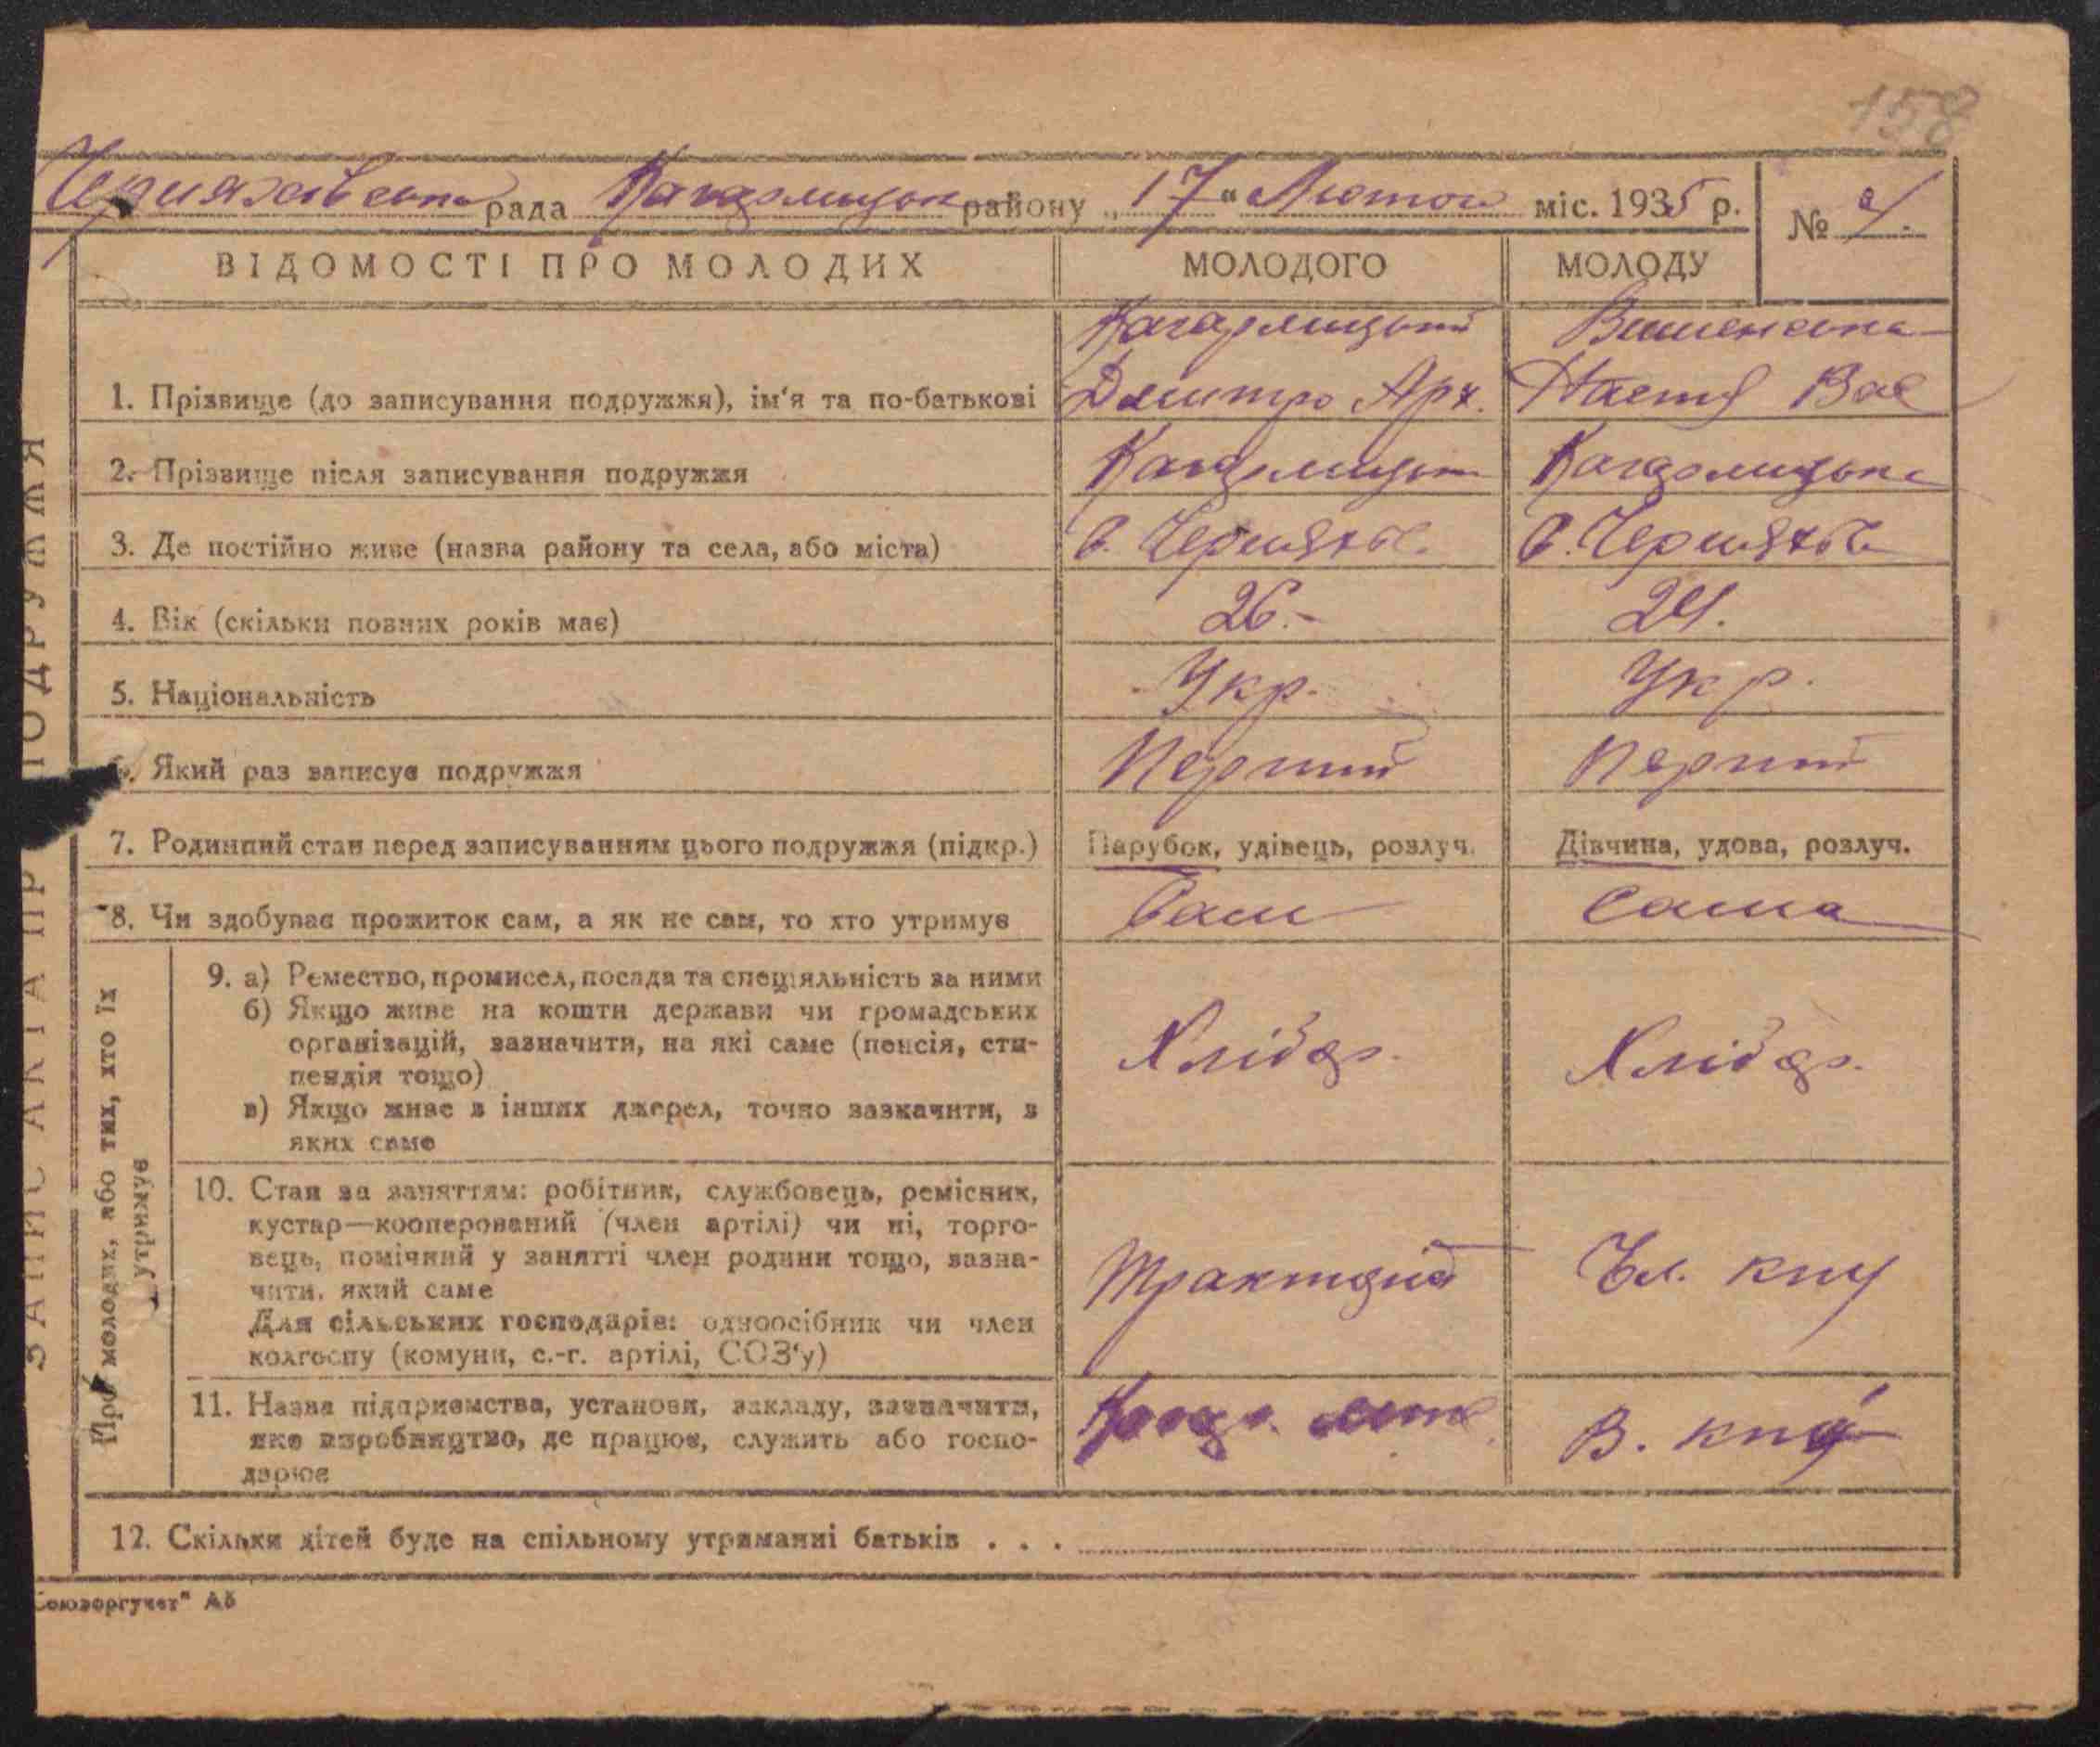 158
Черняхівська рада Кагарлицьк району „17“ Лютого міс. 1935 р.
№
ВІДОМОСТІ ПРО МОЛОДИХ МОЛОДОГО МОЛОДУ
Кагарлицький Вишенська
1. Прізвище (до записування подружжя), ім'я та по-батькові Дмитро Арх. Настя Вас
2. Прізвище після записування подружжя Кагарлицьк Кагарлицька
3. Де постійно живе (назва району та села, або міста) с. Черняхів с. Черняхів
4. Вік (скільки повних років має) 26.- 24.
5. Національність Укр. Укр.
6. Який раз записує подружжя Перший Перший
7. Родинний стан перед записуванням цього подружжя (підкр.) Парубок, удівець, розлуч. Дівчина, удова, розлуч.
8. Чи здобуває прожиток сам, а як не сам, то хто утримує Сам Сама
9. а) Ремество, промисел, посада та спеціяльність за ними
б) Якщо живе на кошти держави чи громадських
організацій, зазначити, на які саме (пенсія, сти-
пендія тощо) Хлібор. Хлібор.
в) Якщо живе з інших джерел, точно зазначити, з
яких саме
10. Стан за заняттям: робітник, службовець, ремісник,
кустар—кооперований (член артілі) чи ні, торго-
вець, помічний у занятті член родини тощо, зазна-
чити, який саме Тракторист Чл. кпу
Для сільських господарів: одноосібник чи член
колгоспу (комуни, с.-г. артілі, СОЗ'у)
11. Назва підприємства, установи, закладу, зазначити,
яке виробництво, де працює, служить або госпо- В. кпу
дарює
12. Скільки дітей буде на спільному утриманні батьків . . .
Союзоргучет" Аб
Про молодих, або тих, хто їх
утримує
ЗАПИС АКТА ПР ПОДРУЖЖЯ